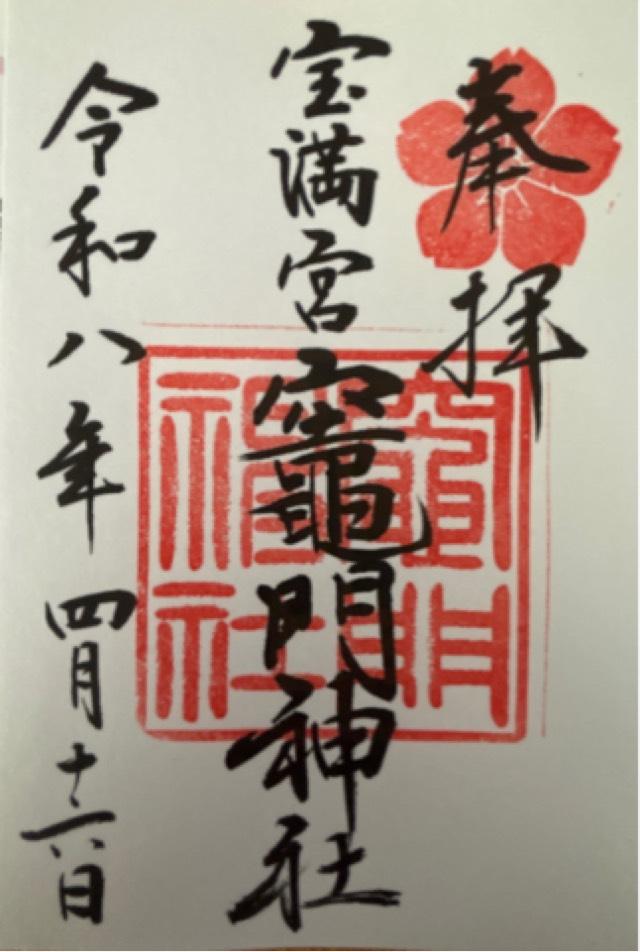 奉拝
宝満宮竈門神社
令和八年四月十六日
竈門
神社